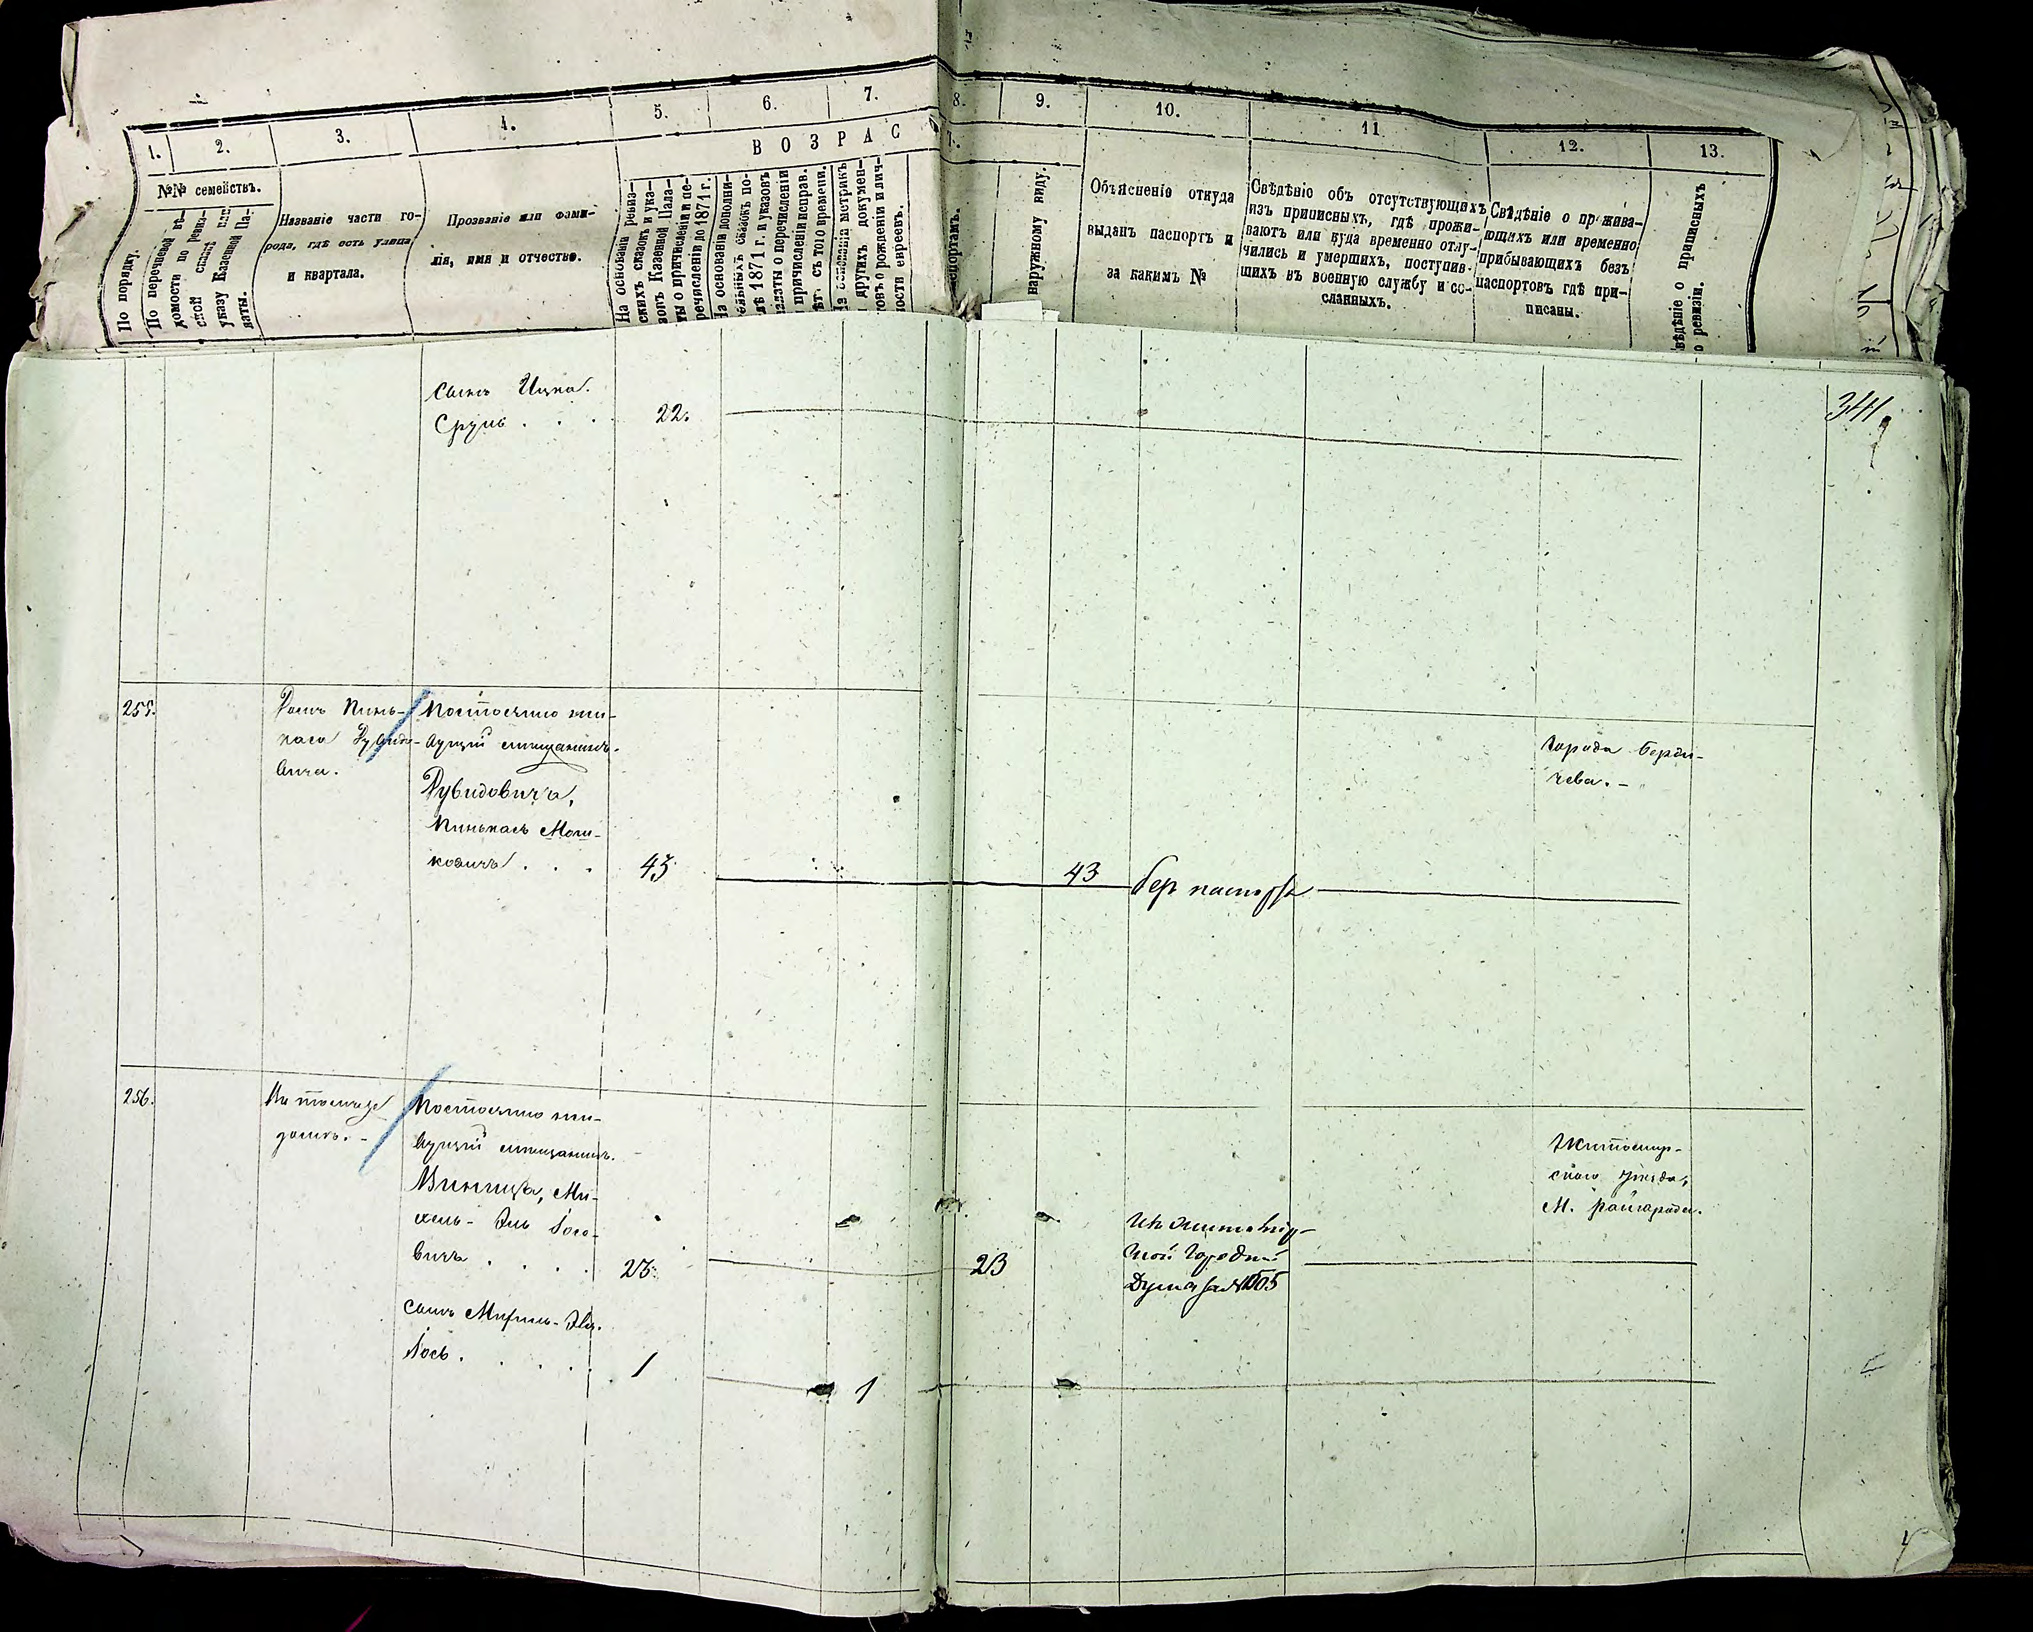 1.
2.
3.
4.
5.
6.
7.
8.
9.
10.
11
12.
13.
В О З Р А С
Т.
№№ семействъ.
По порядку.
По перечневой вѣ-
домости по ревиз-
ской сказкѣ или
указу Казенной Па-
латы.
Названіе части го-
рода, гдѣ есть улица
и квартала.
Прозваніе или фами-
лія, имя и отчество.
На основаніи ревиз-
скихъ сказокъ и ука-
зовъ Казенной Пала-
ты о причисленіи и пе-
речисленіи до 1871 г.
На основаніи дополни-
тельныхъ сказокъ по-
слѣ 1871 г. и указовъ
палаты о перечисленіи
и причисленіи исправ.
лѣт. съ того времени.
На основаніи метрикъ
и другихъ докумен-
товъ о рожденіи и лич-
ности евреевъ.
паспортамъ.
наружному виду.
Объясненіе откуда
выданъ паспортъ и
за какимъ №
Свѣдѣніе объ отсутствующихъ
изъ приписныхъ, гдѣ прожи-
ваютъ или куда временно отлу-
чились и умершихъ, поступив-
шихъ въ военную службу и со-
сланныхъ.
Свѣдѣніе о прожива-
ющихъ или временно
прибывающихъ безъ
паспортовъ гдѣ при-
писаны.
Свѣдѣніе о приписныхъ
по ревизіи.
341
Сынъ Ицка.
Сруль . . .
22.
255.
Домъ Пинь-
каса Рувидо-
вича.
Постоянно жи-
вущій мещанинъ.
Рувидовичъ,
Пинькасъ Мош-
ковичъ . . .
43
43
без паспорта
Города Берди-
чева. -
256.
домъ. -
Постоянно жи-
вущій мещанинъ.
Винница, Ми-
хель-Эль Іосо-
вичъ . . . .
23.
23
Из Житомир-
ской Городской
Думы за №505
Житомир-
скаго уѣзда,
М. Райгорода.
Сынъ
Іось . . . . .
1
1